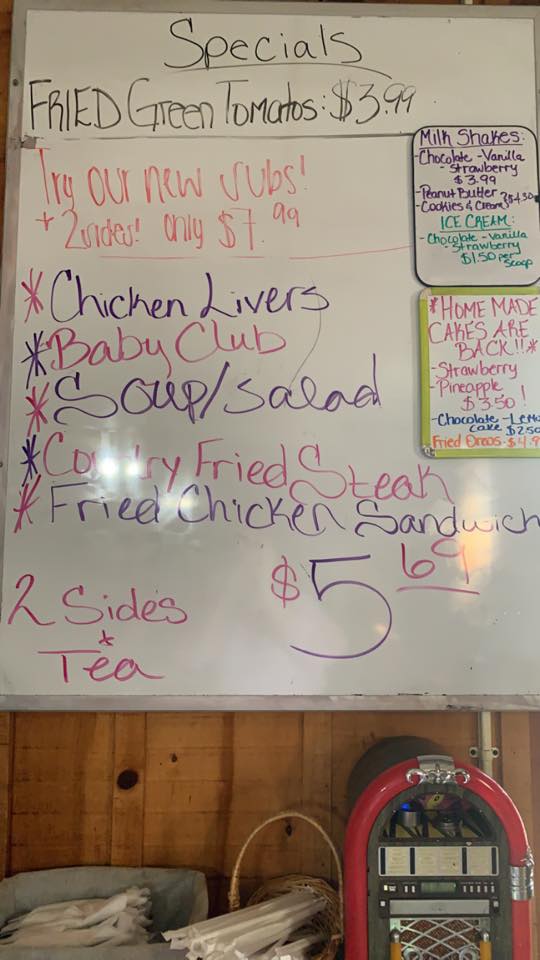 Specials
FRIED Green Tomatos: $3.99
Try our new subs!
+ 2 sides! only $7.99
* Chicken Livers
* Baby Club
* Soup/Salad
* Country Fried Steak
* Fried Chicken Sandwich
$5 69
2 Sides
*
Tea
Milk Shakes:
- Chocolate - Vanilla
- Strawberry
$3.99
- Peanut Butter
- Cookies & Cream $4.50
ICE CREAM:
- Chocolate - Vanilla
- Strawberry
$1.50 per scoop
*HOME MADE
CAKES ARE
BACK!!*
- Strawberry
- Pineapple
$3.50!
- Chocolate -
cake $2.50
Fried Oreos - $4.9